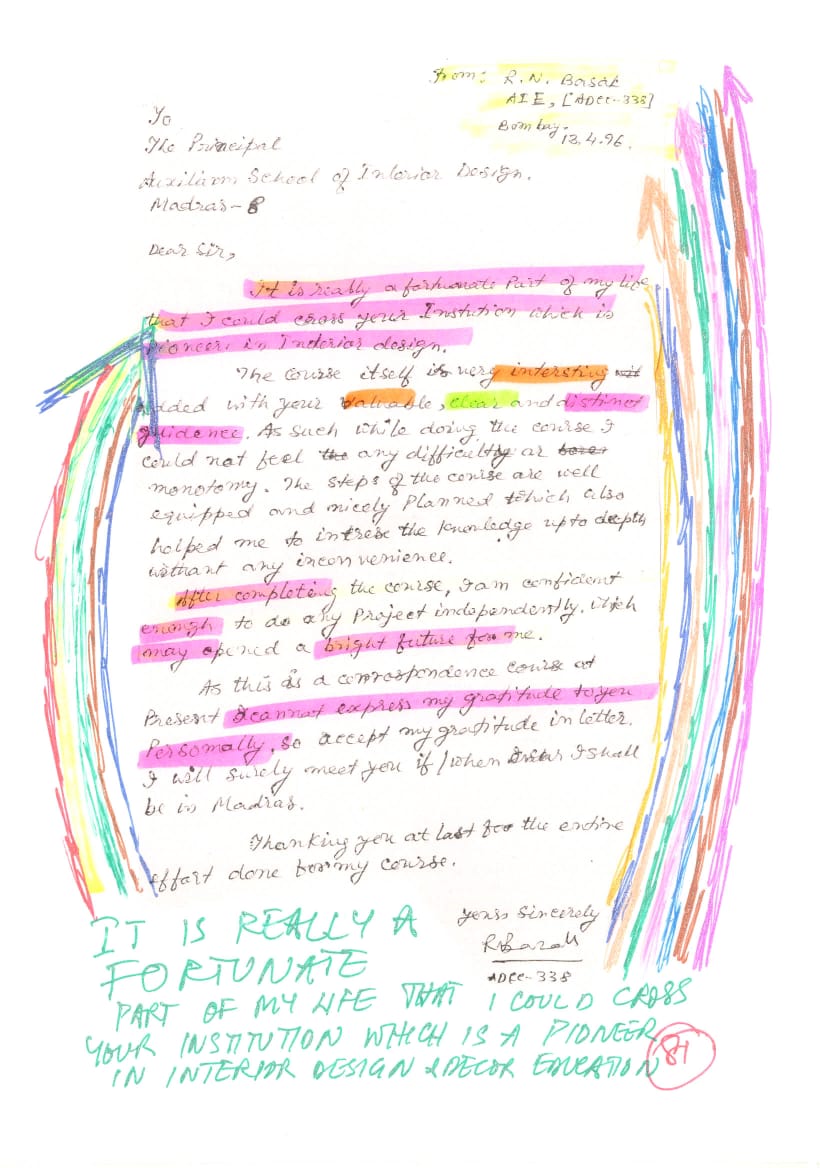 From: R. N. Basak
AIE, [ADCC-338]
Bombay.
13.4.96.
To
The Principal
Auxilium School of Interior Design.
Madras-8
Dear Sir,
It is really a fortunate Part of my life
that I could cross your Instution which is
pioneer in Interior design.
The course itself is very intersting
added with your valuable, clear and distinct
guidence. As such while doing the course I
could not feel the any difficulty or
monotomy. The steps of the course are well
equipped and nicely Planned which also
helped me to the knowledge upto depth
without any inconvenience.
After completing the course, I am confident
enough to do any Project independently. which
may opened a bright future for me.
As this is a correspondence course at
Present I cannot express my gratitude to you
Personally. So accept my gratitude in letter.
I will surely meet you if/when I shall
be in Madras.
Thanking you at last for the entire
effort done for my course.
yours Sincerely
RBasak
ADCC-338
IT IS REALLY A
FORTUNATE
PART OF MY LIFE THAT I COULD CROSS
YOUR INSTITUTION WHICH IS A PIONEER
IN INTERIOR DESIGN & DECOR EDUCATION